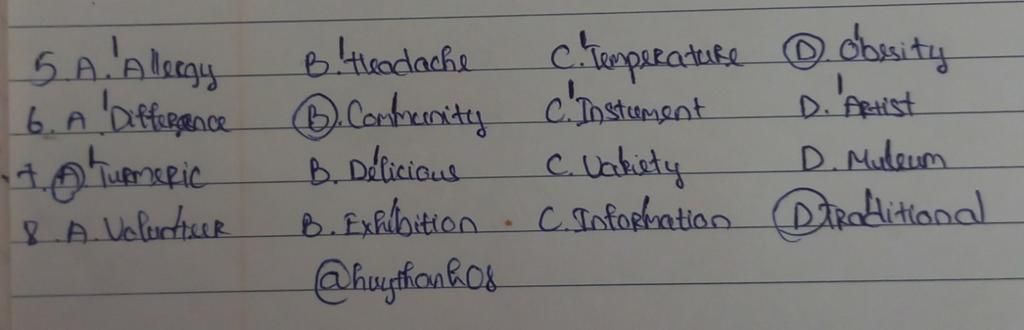 5. A. 'Allergy B. 'Headache C. 'Temperature D. Obesity
6. A. 'Difference B. Community C. 'Instument D. 'Artist
7. A 'Turmeric B. Delicious C. Variety D. Museum
8. A. Volunteer B. Exhibition C. Information D Traditional
@huythanh08